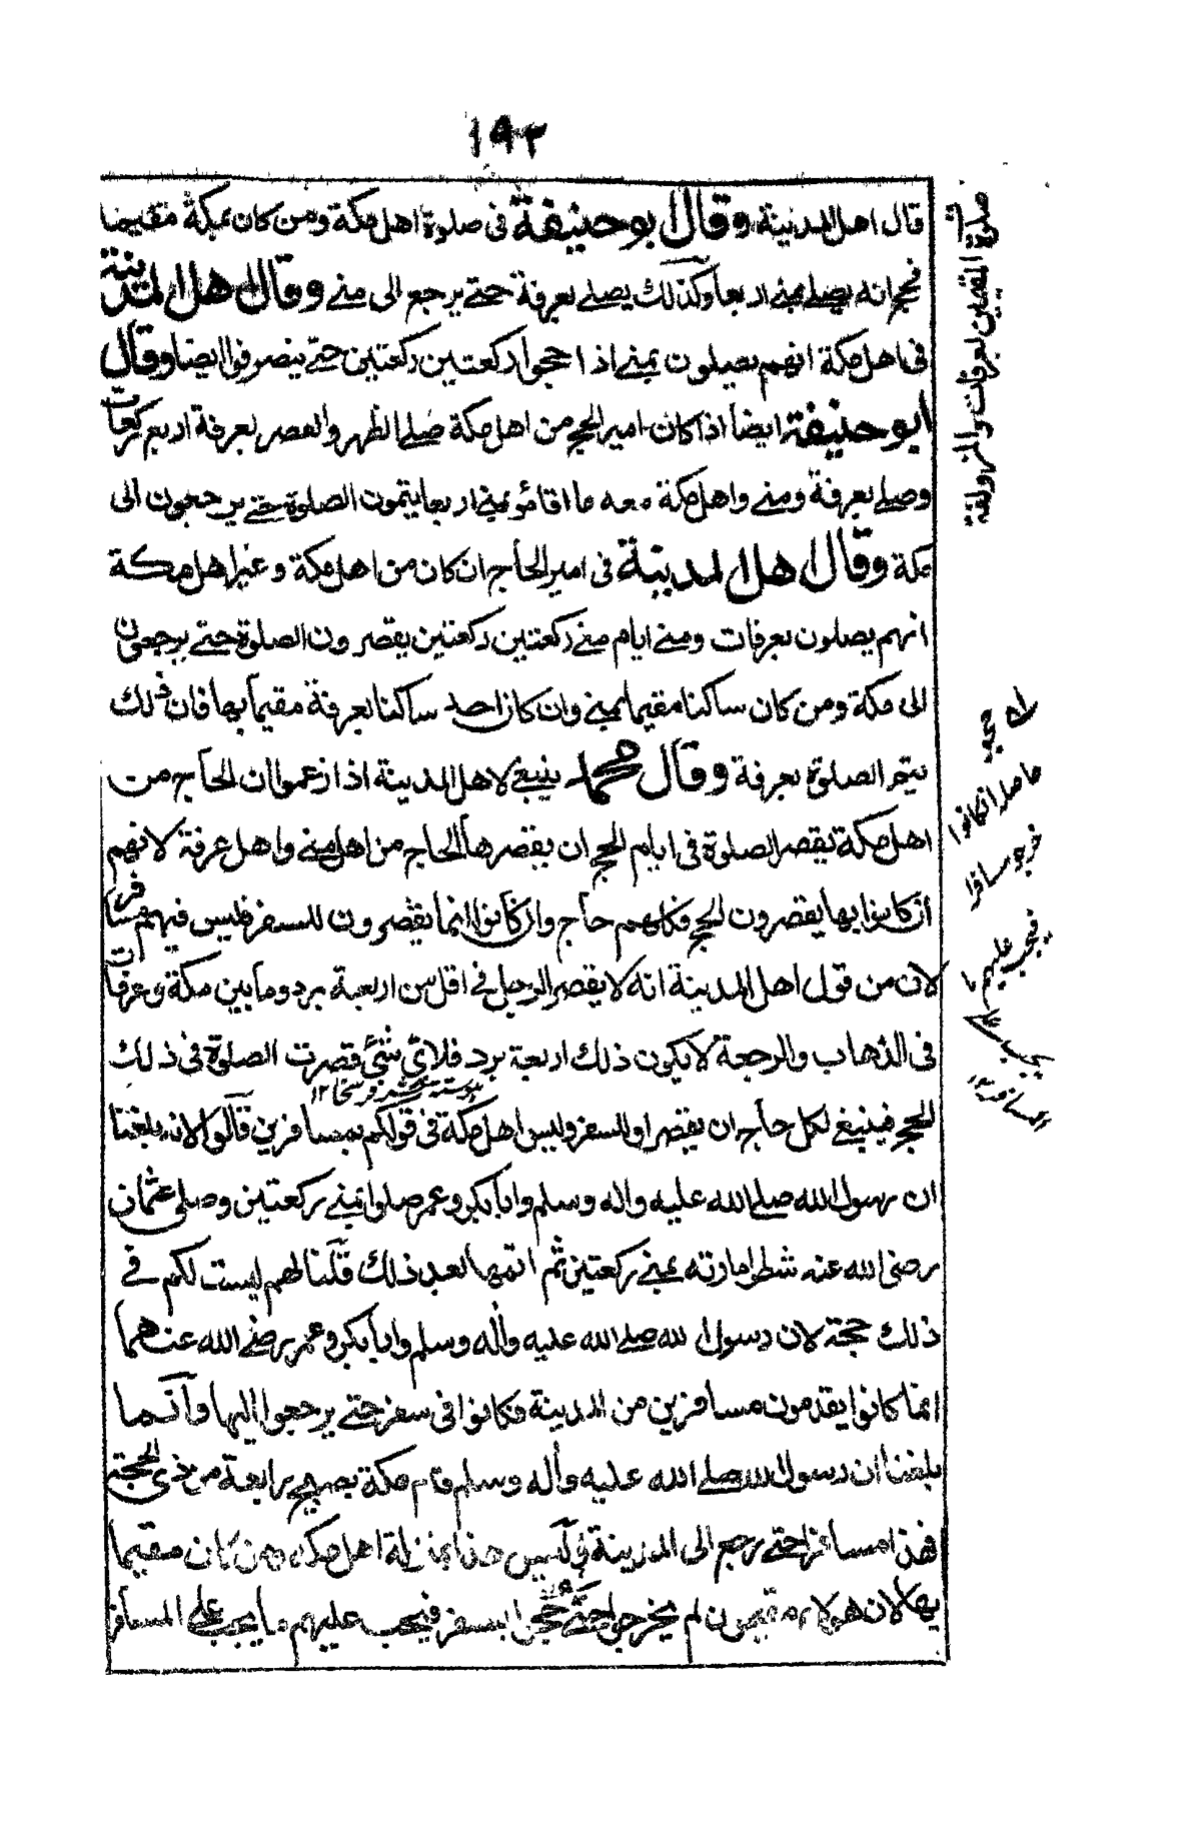 ١٩٣
قال اهل المدينة وقال ابو حنيفة فى صلوة اهل مكة ومن كان بمكة مقيما
فحج انه يصلى بمنى اربعا وكذلك يصلے بعرفة حتے يرجع الى منے وقال اهل المدينة
فى اهل مكة انهم يصلون بمنے اذا حجوا ركعتين ركعتين حتے ينصرفوا ايضا وقال
ابو حنيفة ايضا اذا كان امير الحج من اهل مكة صلے الظهر والعصر بعرفة اربع ركعات
وصلے بعرفة ومنے واهل مكة معه ما اقاموا بمنى اربعا يتمون الصلوة حتے يرجعون الى
مكة وقال اهل المدينة فى امير الحاج ان كان من اهل مكة وغير اهل مكة
انهم يصلون بعرفات ومنے ايام منے ركعتين ركعتين يقصرون الصلوة حتے يرجعون
الى مكة ومن كان ساكنا مقيما بمنے وان كان احد ساكنا بعرفة مقيما بها فان ذلك
يتم الصلوة بعرفة وقال محمد ينبغے لاهل المدينة اذا زعموا ان الحاج من
اهل مكة يقصر الصلوة فى ايام الحج ان يقصرها الحاج من اهل منے واهل عرفة لانهم
ان كانوا بها يقصرون للحج فكلهم حاج وان كانوا انما يقصرون للسفر فليس فيهم مسافر
لان من قول اهل المدينة انه لا يقصر الرجل فے اقل من اربعة برد وما بين مكة وعرفات
فى الذهاب والرجعة لا يكون ذلك اربعة برد فلاى شئ قصرت الصلوة فى ذلك
للحج فينبغے لكل حاج ان يقصر او للسفر وليس اهل مكة فى قولكم بمسافرين قالوا لانه بلغنا
ان رسول الله صلے الله عليه واله وسلم وابا بكر وعمر صلوا بمنے ركعتين وصلى عثمان
رضى الله عنه شطر امارته بمنے ركعتين ثم اتمها بعد ذلك قلنا لهم ليست لكم فے
ذلك حجة لان رسول الله صلے الله عليه واله وسلم وابا بكر وعمر رضے الله عنهما
انما كانوا يقدمون مسافرين من المدينة فكانوا فى سفر حتے يرجعوا اليها وانما
بلغنا ان رسول الله صلے الله عليه واله وسلم قدم مكة بصبح رابعة من ذى الحجة
فهذا مسافر حتے رجع الى المدينة وليس هذا بمنزلة اهل مكة ومن كان مقيما
بها لان هؤلاء مقيمون لم يخرجوا حتے حجوا لسفر فيجب عليهم ما يجب على المسافر
صلوة المقيمين بعرفات والمزدلفة